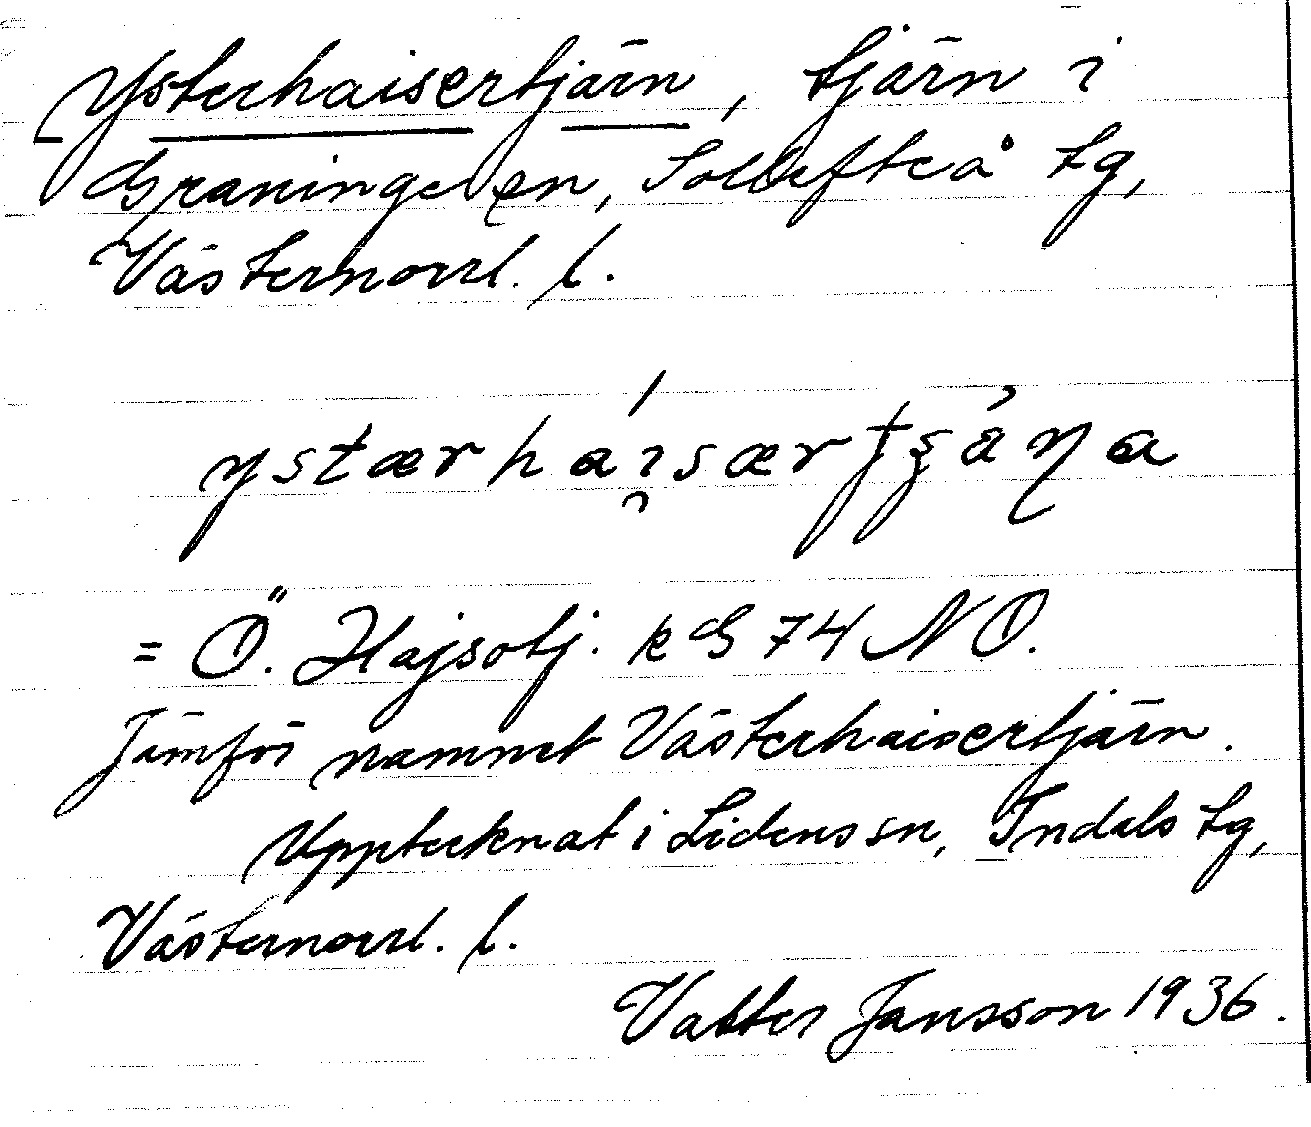 Ysterhaisertjärn, tjärn i
Graninge sn, Sollefteå tg,
Västernorrl. l.
ystærháisærtʂåna
= Ö. Hajsotj. k G 74 NO.
Jämför namnet Västerhaisertjärn.
Upptecknat i Lidens sn, Indals tg,
Västernorrl. l.
Valter Jansson 1936.